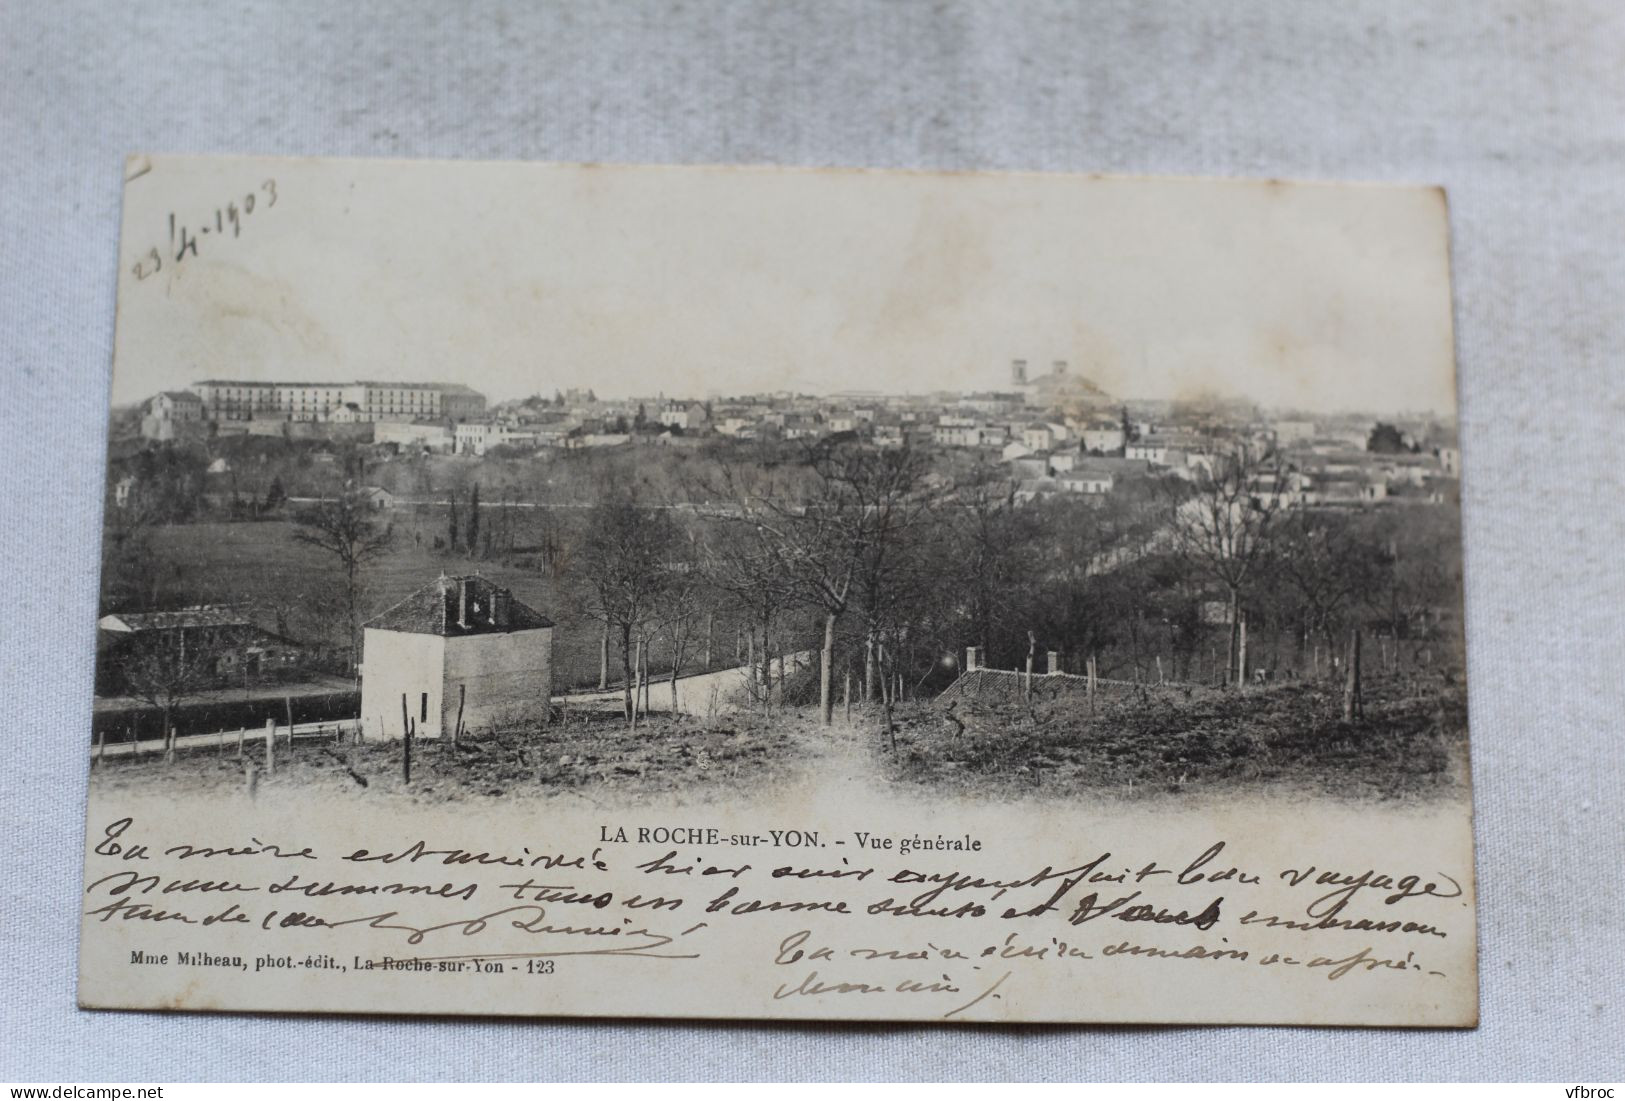 23/4-1903
LA ROCHE-sur-YON. - Vue générale
Ta mère est arrivée hier soir ayant fait bon voyage
Nous sommes tous en bonne santé et Vous embrassons
tous de cœur
Mme Milheau, phot.-édit., La Roche-sur-Yon - 123
Ta mère écrira demain ou après-
demain).
www.delcampe.net
vfbroc